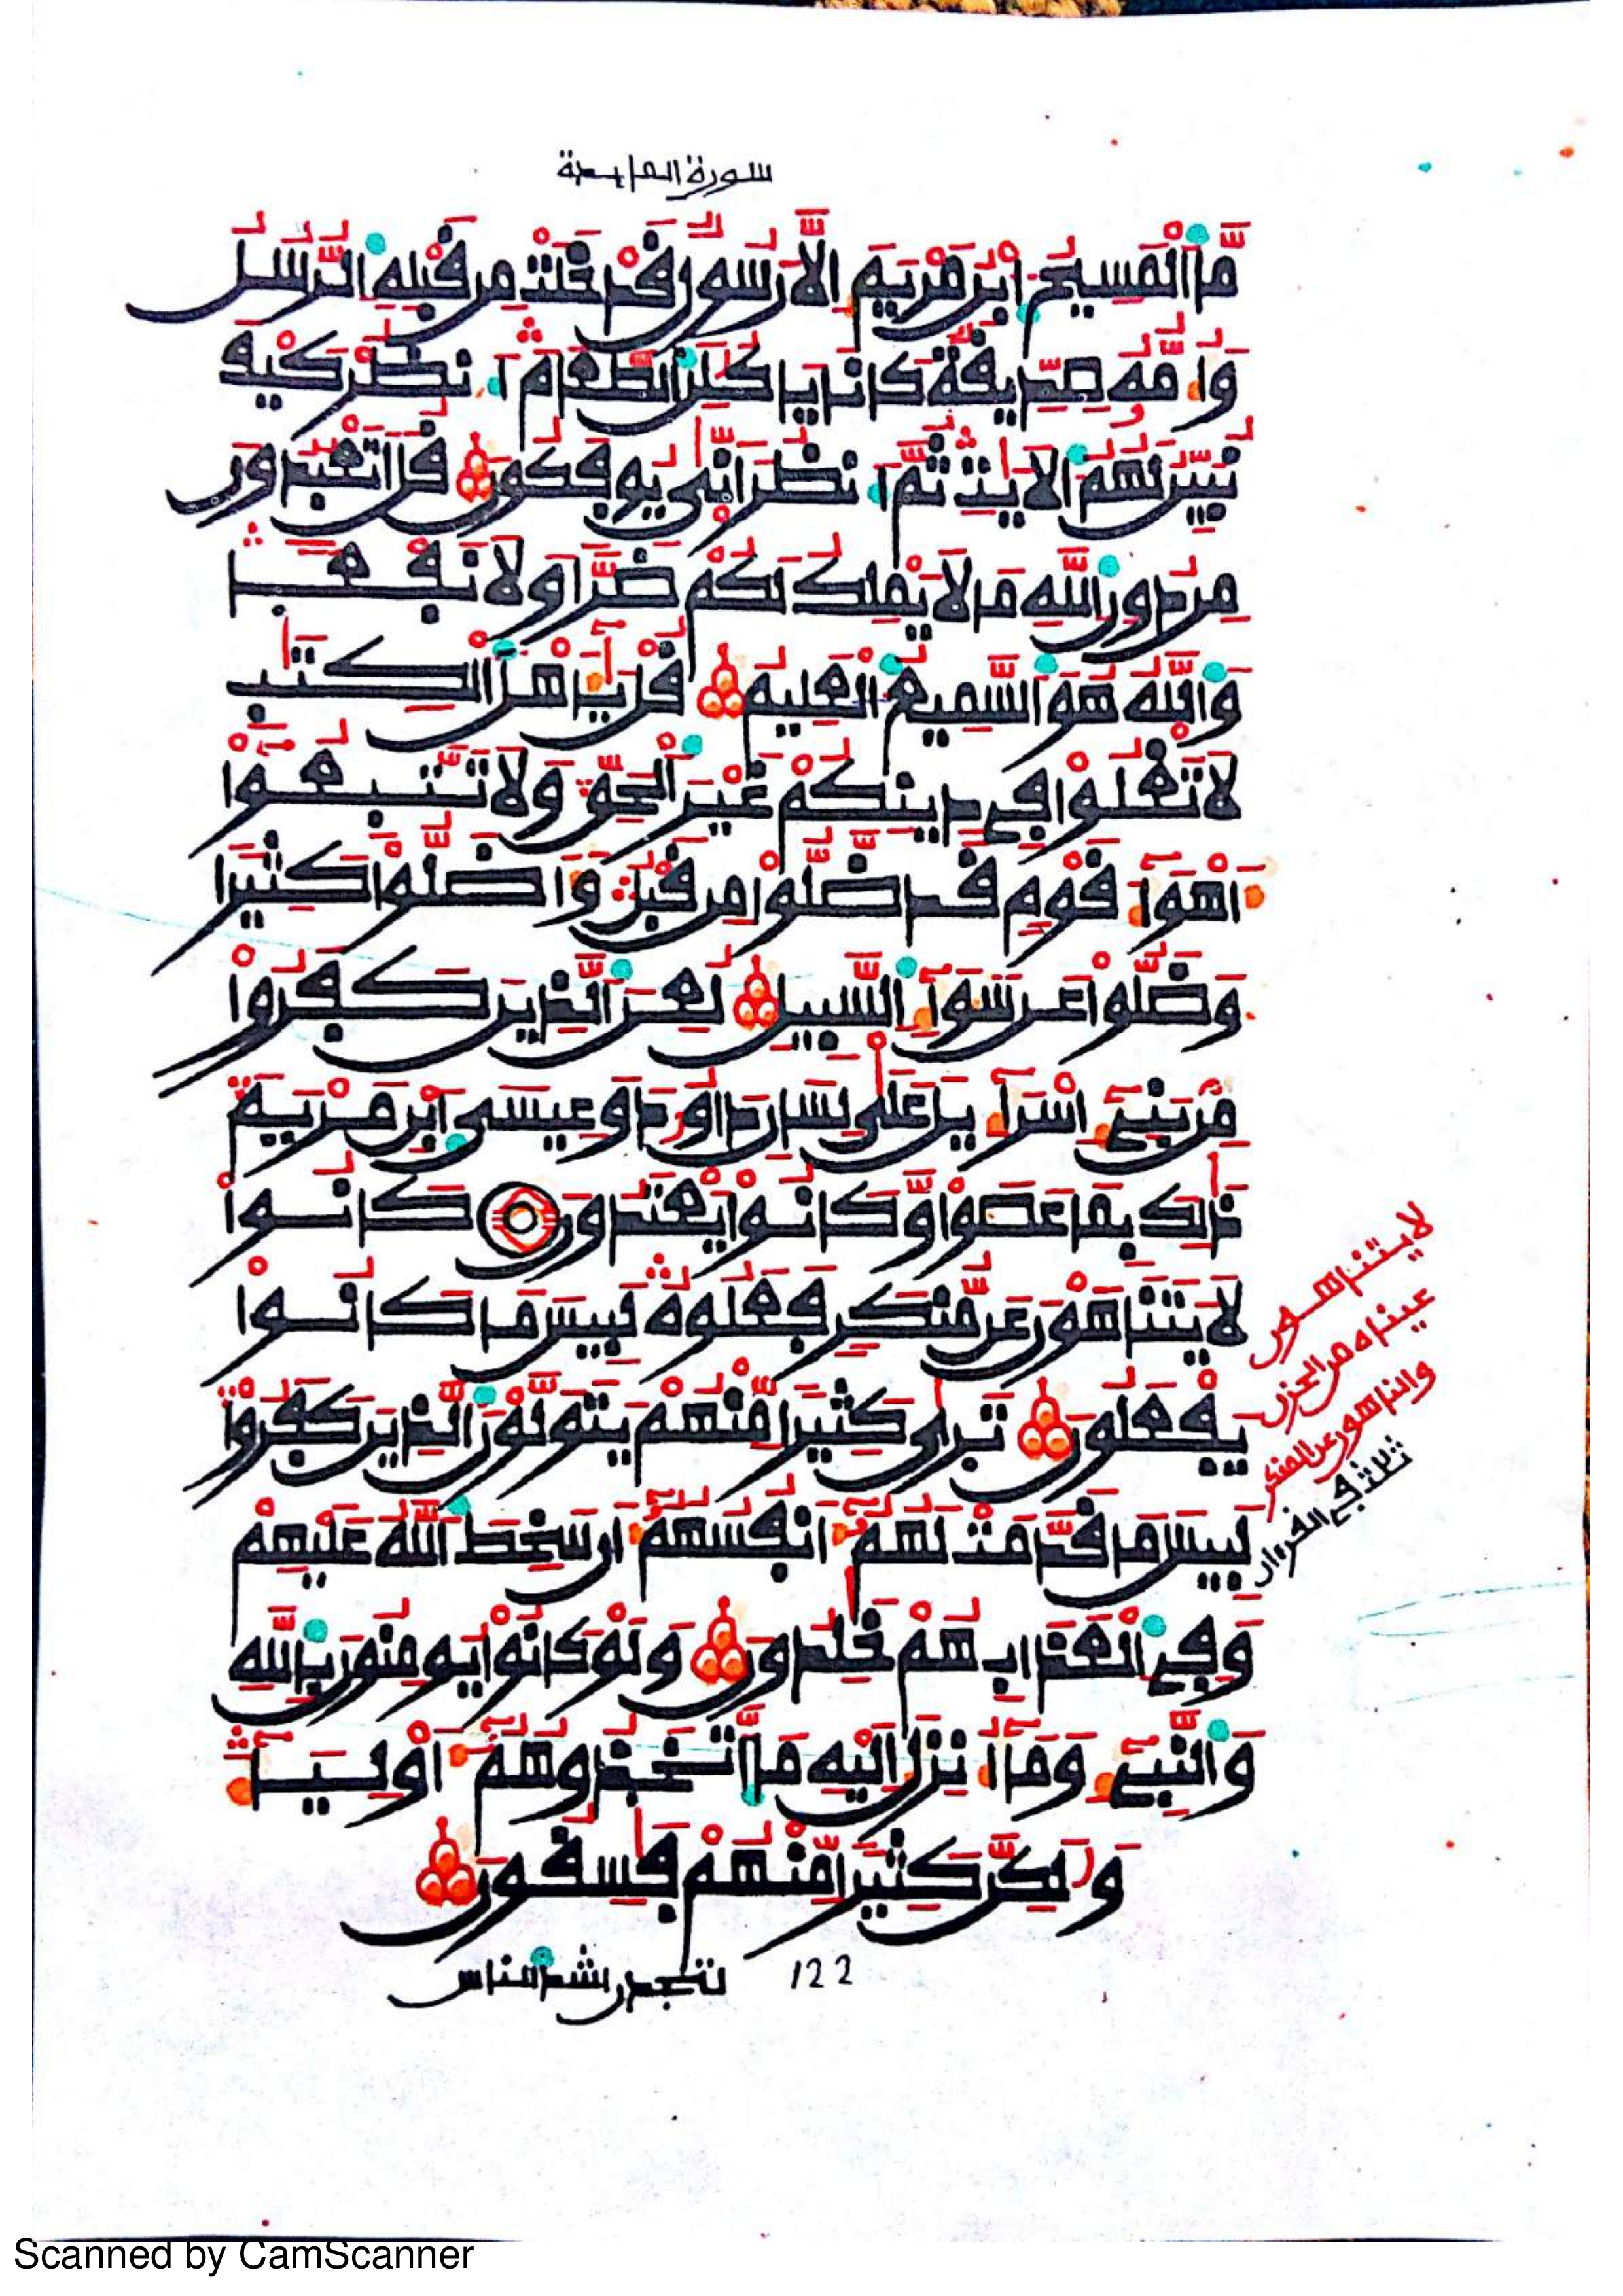 سورة المايدة
مَّا اَلْمَسِيحُ اُبْنُ مَرْيَمَ إِلَّا رَسُولٌ قَدْ خَلَتْ مِن قَبْلِهِ اِلرُّسُلُ
وَأُمُّهُ صِدِّيقَةٌ كَانَا يَاكُلَنِ اِلطَّعَامَ اَنظُرْ كَيْفَ
نُبَيِّنُ لَهُمُ اُلَايَٰتِ ثُمَّ اَنظُرَ اَنّٰى يُوفَكُونَ قُلَ اَتَعْبُدُونَ
مِن دُونِ اِللَّهِ مَا لَا يَمْلِكُ لَكُمْ ضَرّاً وَلَا نَفْعاً
وَاللَّهُ هُوَ اَلسَّمِيعُ اُلْعَلِيمُ قُلْ يَٰأَهْلَ اَلْكِتَٰبِ
لَا تَغْلُواْ فِي دِينِكُمْ غَيْرَ اَلْحَقِّ وَلَا تَتَّبِعُواْ
أَهْوَآءَ قَوْمٍ قَد ضَّلُّواْ مِن قَبْلُ وَأَضَلُّواْ كَثِيراً
وَضَلُّواْ عَن سَوَآءِ اِلسَّبِيلِ لُعِنَ اَلذِينَ كَفَرُواْ
مِنۢ بَنِي إِسْرَآءِيلَ عَلَىٰ لِسَانِ دَاوُۥدَ وَعِيسَى اَبْنِ مَرْيَمَ
ذَٰلِكَ بِمَا عَصَواْ وَّكَانُواْ يَعْتَدُونَ كَانُواْ
لَا يَتَنَاهَوْنَ عَن مُّنكَرٍ فَعَلُوهُ لَبِيسَ مَا كَانُواْ
يَفْعَلُونَ تَرَىٰ كَثِيراً مِّنْهُمْ يَتَوَلَّوْنَ اَلذِينَ كَفَرُواْ
لَبِيسَ مَا قَدَّمَتْ لَهُمُ أَنفُسُهُمُ أَن سَخِطَ اَللَّهُ عَلَيْهِمْ
وَفِي اِلْعَذَابِ هُمْ خَٰلِدُونَ وَلَوْ كَانُواْ يُومِنُونَ بِاللَّهِ
وَالنَّبِيِٓءِ وَمَا أُنزِلَ إِلَيْهِ مَا اَتَّخَذُوهُمُ أَوْلِيَآءَ
وَلَٰكِنَّ كَثِيراً مِّنْهُمْ فَٰسِقُونَ
لا يتناهون
عيناه من الحزن
والناهون عن المنكر
ثلاث في القرءان
لتجدن أشد الناس
122
Scanned by CamScanner